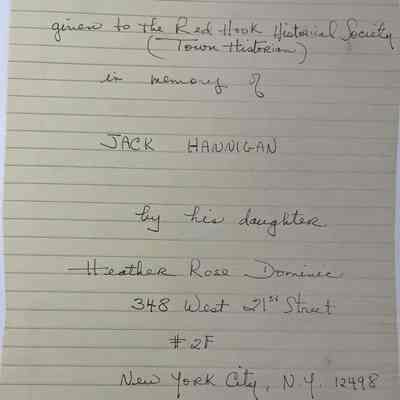 given to the Red Hook Historical Society
(Town Historian)
in memory of
JACK HANNIGAN
by his daughter
Heather Rose Dominic
348 West 21st Street
#2F
New York City, N.Y. 12498